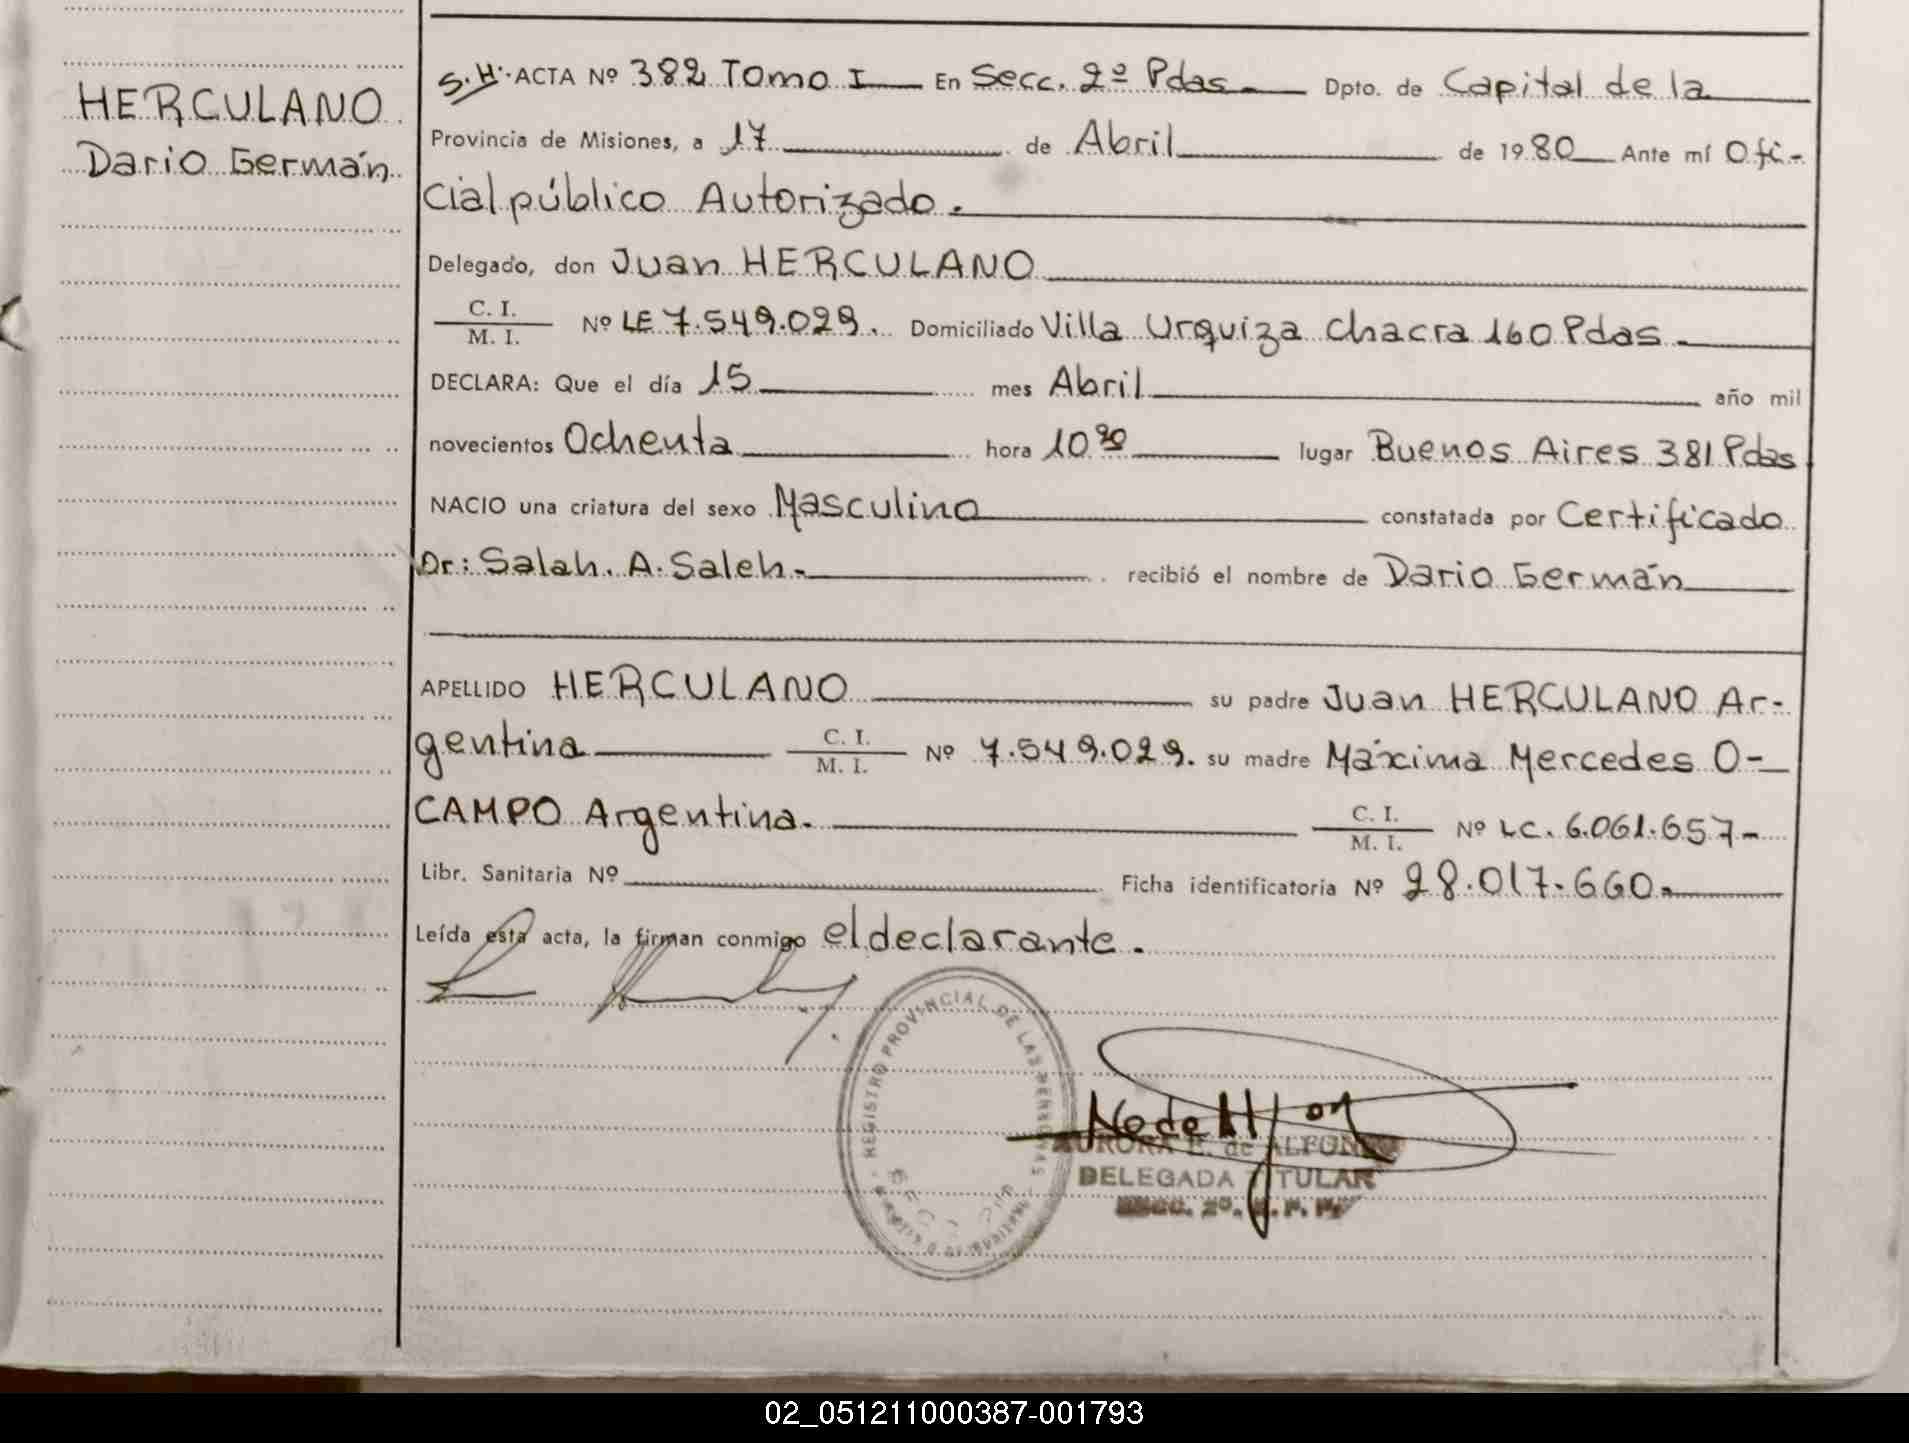 HERCULANO
Dario Germán
S.H. ACTA Nº 382 Tomo I En Secc. 2º Pdas Dpto. de Capital de la
Provincia de Misiones, a 17 de Abril de 1980 Ante mí Ofi-
cial público Autorizado.
Delegado, don Juan HERCULANO
C. I.
M. I. Nº LE 7.549.029. Domiciliado Villa Urquiza Chacra 160 Pdas
DECLARA: Que el día 15 mes Abril año mil
novecientos Ochenta hora 10 lugar Buenos Aires 381 Pdas
NACIO una criatura del sexo Masculino constatada por Certificado
Dr: Salah. A. Saleh. recibió el nombre de Dario Germán
APELLIDO HERCULANO su padre Juan HERCULANO Ar-
gentina C. I.
M. I. Nº 7.549.029. su madre Máxima Mercedes O-
CAMPO Argentina. C. I.
M. I. Nº LC. 6.061.657-
Libr. Sanitaria Nº Ficha identificatoria Nº 28.017.660.
Leída esta acta, la firman conmigo el declarante.
REGISTRO PROVINCIAL DE LAS PERSONAS
AURORA E. de ALFONSO
DELEGADA TITULAR
SECC. 2º.
02_051211000387-001793